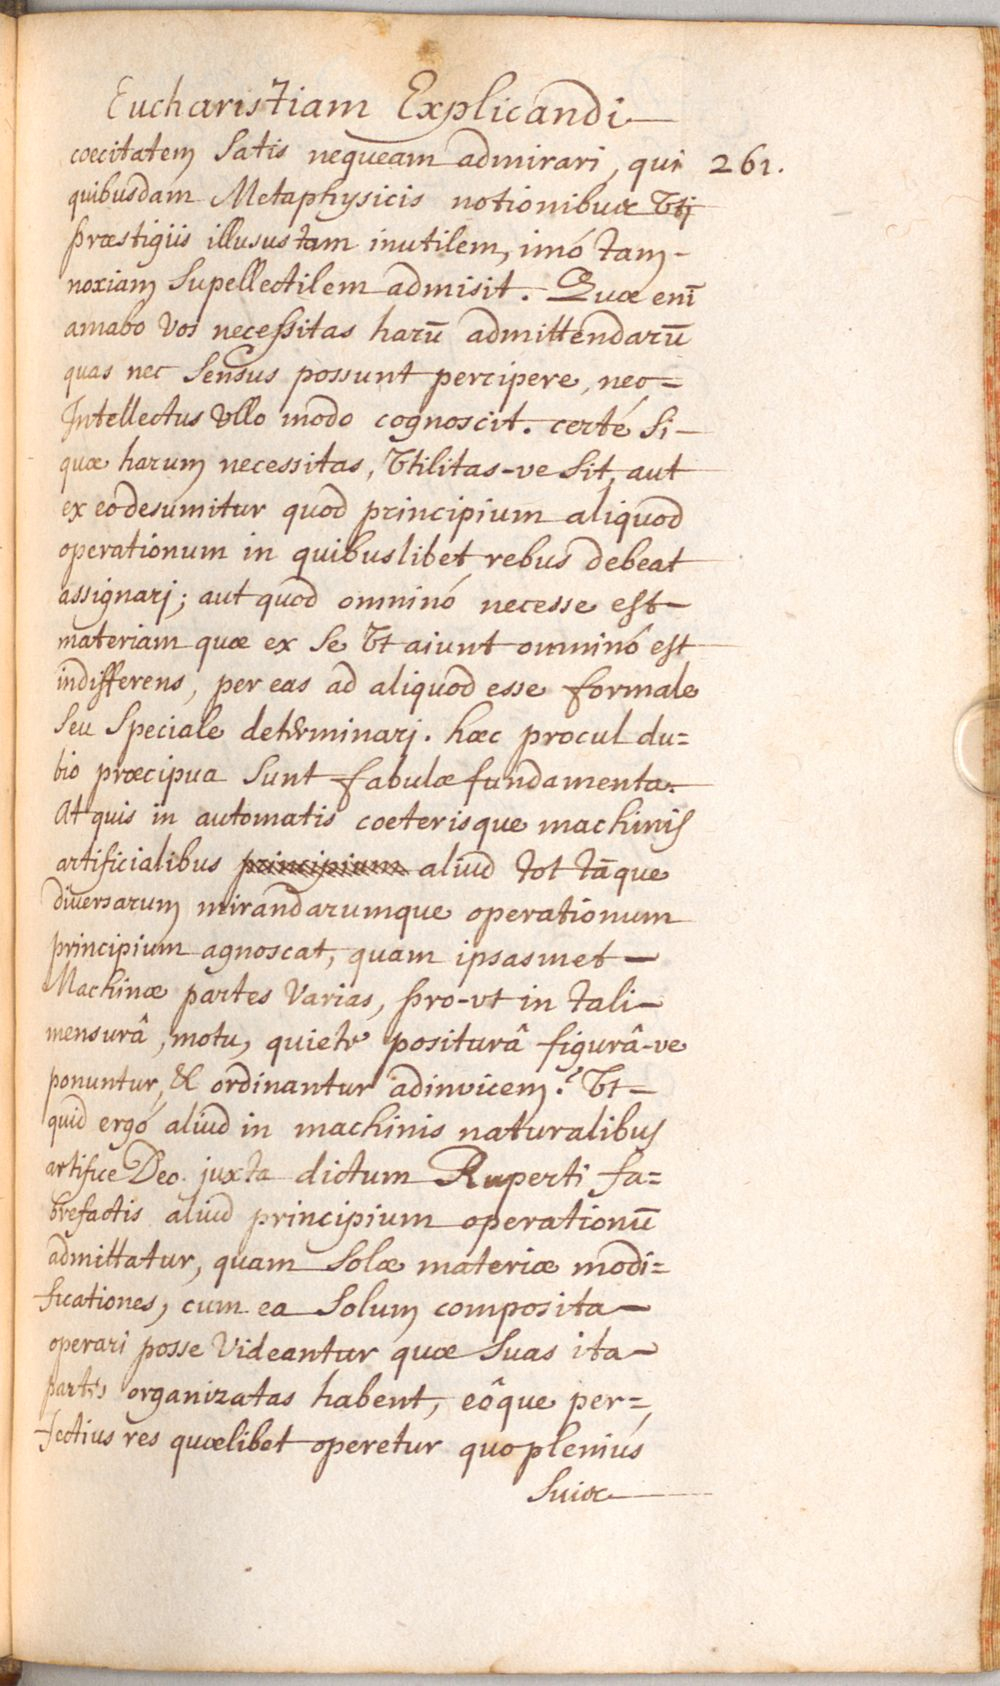 Eucharistiam Explicandi
coecitatem Satis nequeam admirari, qui 261.
quibusdam Metaphysicis notionibus Utj
præstigiis illusus tam inutilem, imó tam-
noxiam Supellectilem admisit. Quæ enī
amabo Vos necessitas harū admittendarū
quas nec Sensus possunt percipere, nec=
Intellectus Ullo modo cognoscit. certé Si-
quæ harum necessitas, Utilitas-ve Sit, aut
ex eo desumitur quod principium aliquod
operationum in quibuslibet rebus debeat
assignarj; aut quod omninó necesse est-
materiam quæ ex Se Ut aiunt omninó est
indifferens, per eas ad aliquod esse formale
Seu Speciale determinarj. hæc procul du=
bio præcipua Sunt fabulæ fundamenta.
At quis in automatis coeterisque machinis
artificialibus principium aliud tot tāque
diversarum mirandarumque operationum
principium agnoscat, quam ipsasmet-
Machinæ partes Varias, pro-ut in tali-
mensurâ, motu, quiete positurâ figurâ-ve
ponuntur, & ordinantur adinvicem? Ut-
quid ergó aliud in machinis naturalibus
artifice Deo. juxta dictum Ruperti fa=
brefactis aliud principium operationū
admittatur, quam Solæ materiæ modi=
ficationes, cum ea Solum composita-
operari posse Videantur quæ Suas ita-
partes organizatas habent, eôque per=
fectius res quælibet operetur quo plenius
Suis